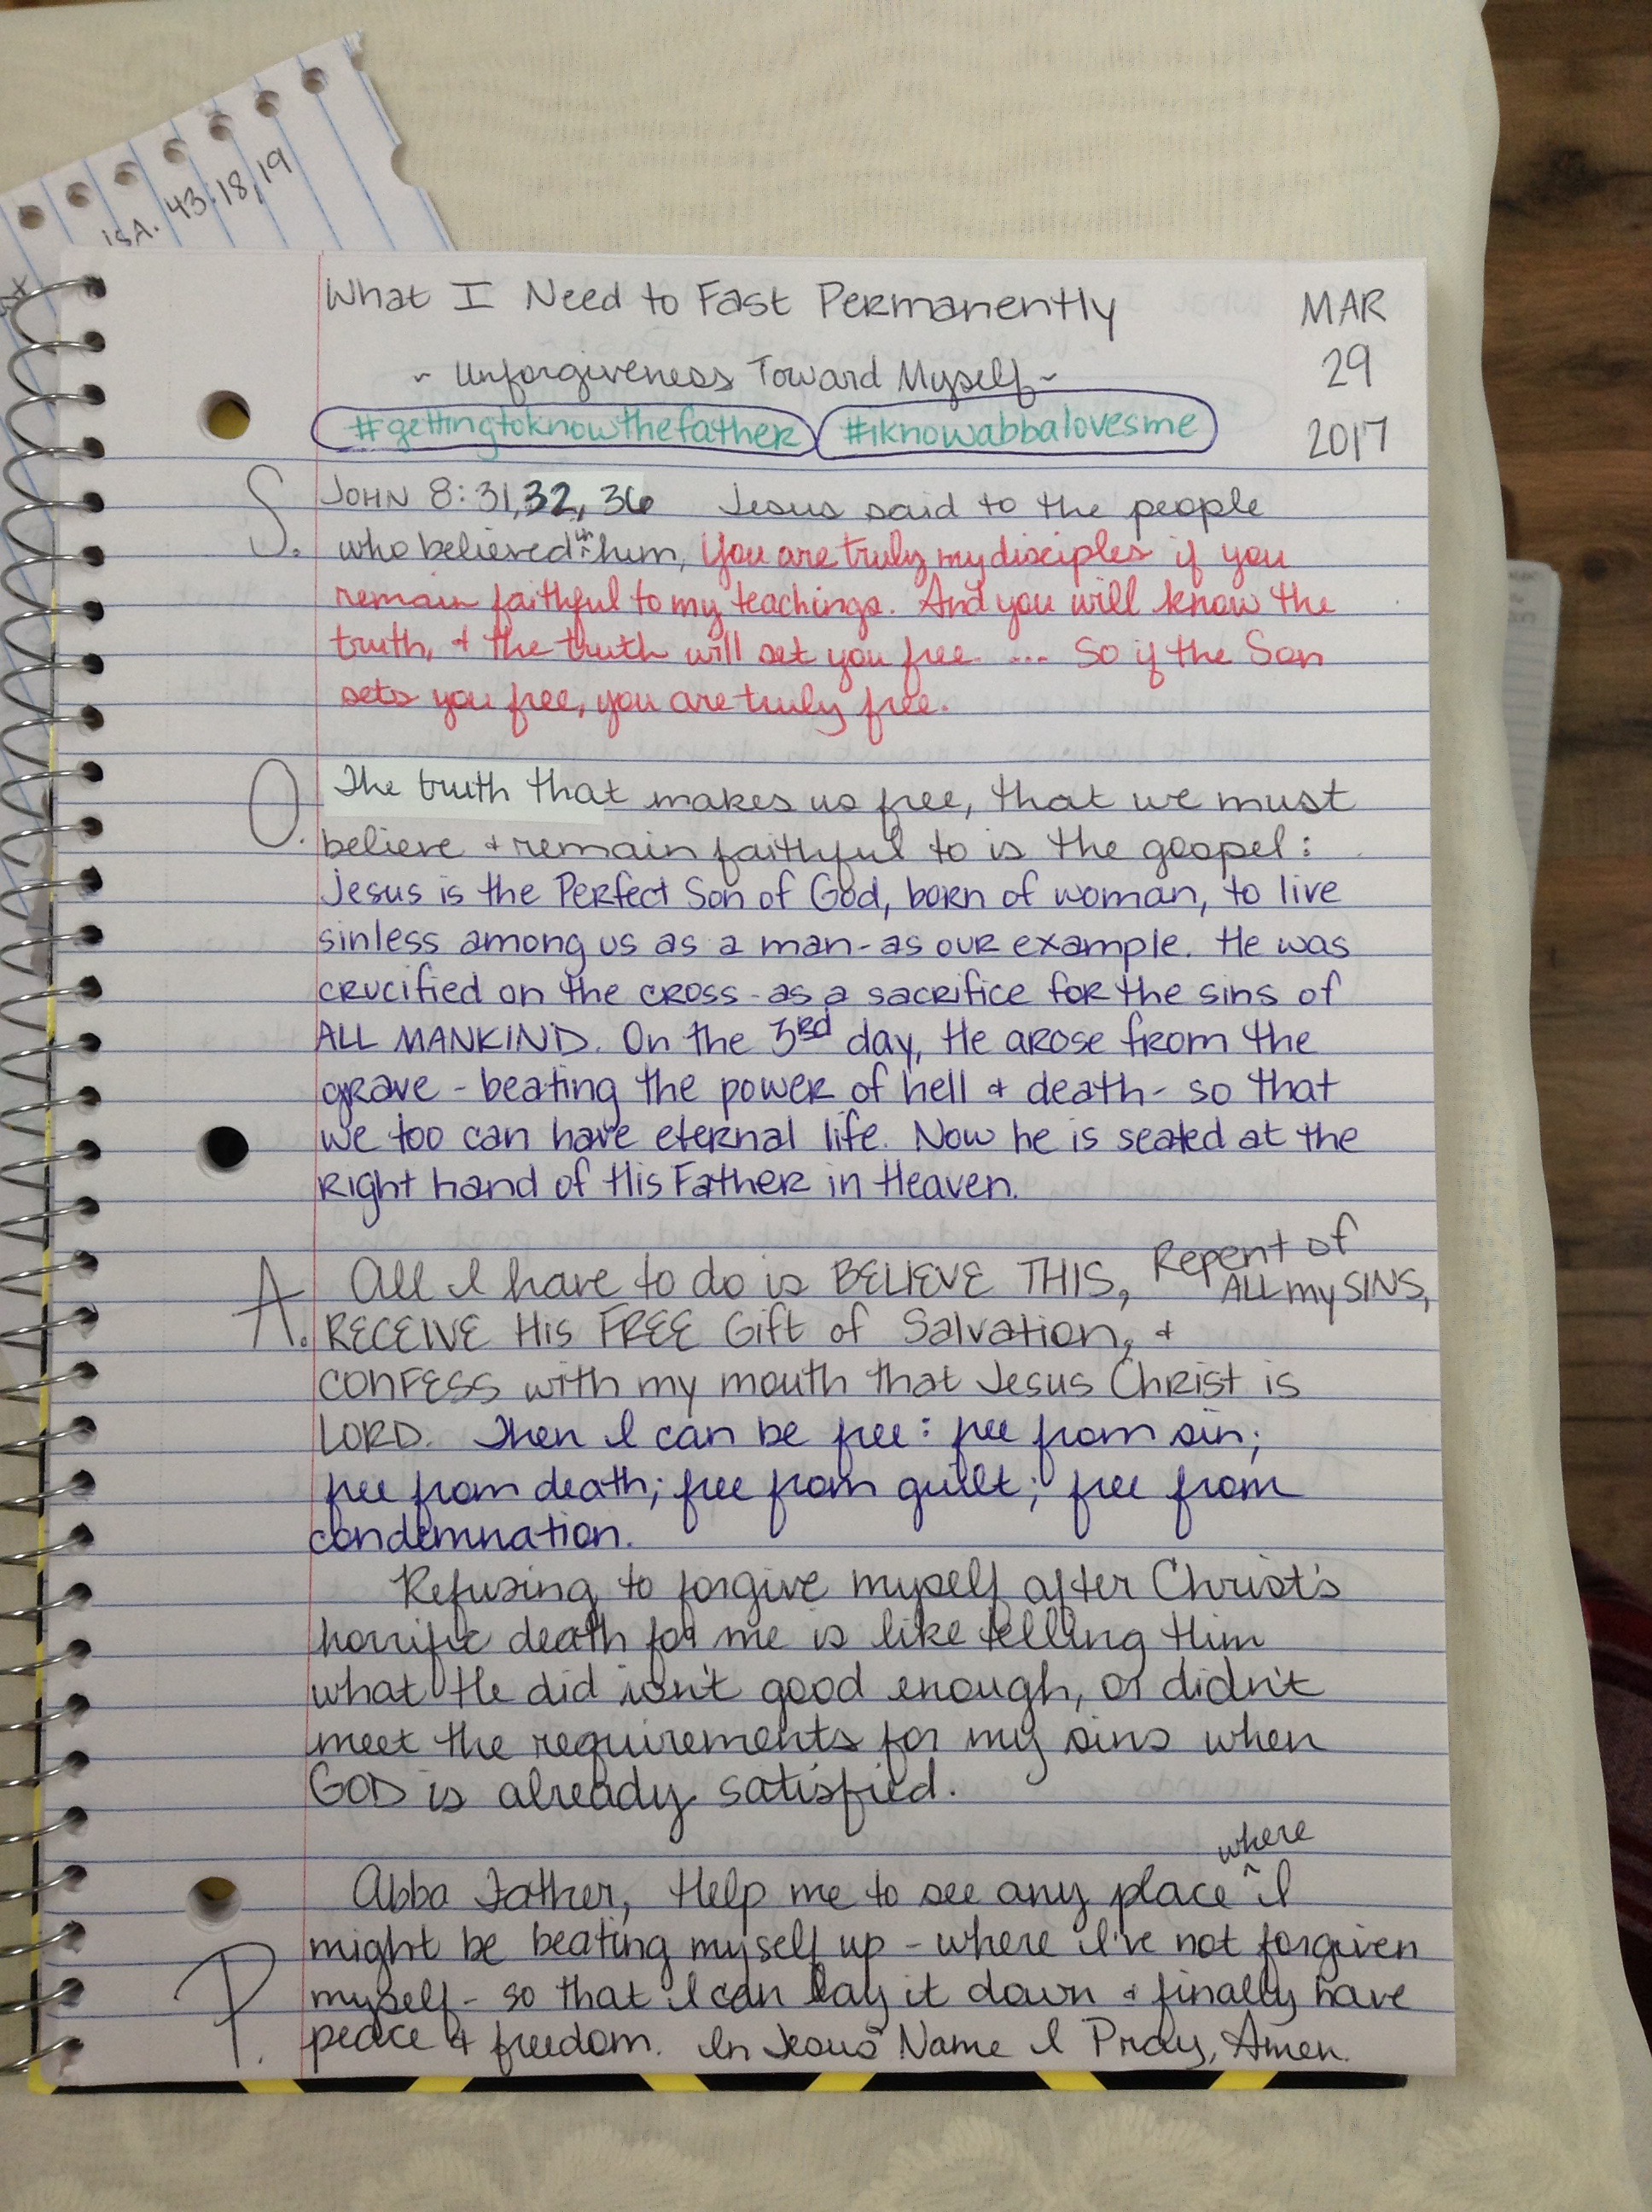 isA. 43:18,19
What I Need to Fast Permanently
MAR
29
2017
~ Unforgiveness Toward Myself ~
#gettingtoknowthefather #iknowabbalovesme
S. John 8:31,32, 36 Jesus said to the people
who believed in him, You are truly my disciples if you
remain faithful to my teachings. And you will know the
truth, & the truth will set you free. .... So if the Son
sets you free, you are truly free.
O. The truth that makes us free, that we must
believe & remain faithful to is the gospel:
Jesus is the Perfect Son of God, born of woman, to live
sinless among us as a man - as our example. He was
crucified on the cross - as a sacrifice for the sins of
ALL MANKIND. On the 3rd day, He arose from the
grave - beating the power of hell & death - so that
we too can have eternal life. Now he is seated at the
Right hand of His Father in Heaven.
A. All I have to do is BELIEVE THIS, Repent of ALL my SINS,
RECEIVE His FREE Gift of Salvation, &
CONFESS with my mouth that Jesus Christ is
LORD. Then I can be free: free from sin;
free from death; free from guilt; free from
condemnation.
Refusing to forgive myself after Christ's
horrific death for me is like telling Him
what He did isn't good enough, or didn't
meet the requirements for my sins when
GOD is already satisfied.
P. Abba Father, Help me to see any place where I
might be beating myself up - where I've not forgiven
myself - so that I can lay it down & finally have
peace & freedom. In Jesus' Name I Pray, Amen.